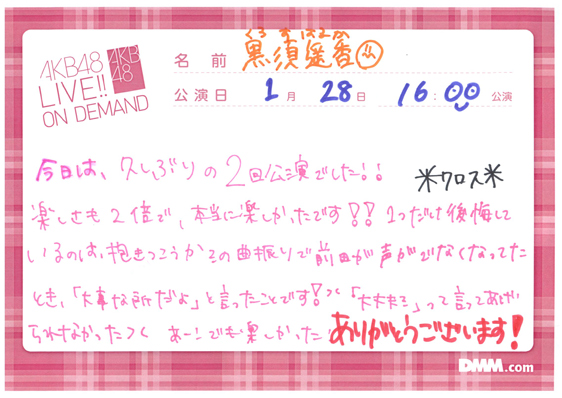 AKB48
LIVE!!
ON DEMAND
AKB
48
くろ す はるか
名前 黒須遥香
公演日 1月 28日 16:00 公演
今日は、久しぶりの2回公演でした!!
米クロス米
楽しさも2倍で、本当に楽しかったです!!1つだけ後悔して
いるのは、抱きつこうかの曲振りで前田が声がでなくなってた
とき、「大事な所だよ」と言ったことです!「大丈夫?」って言ってあげ
られなかったつく あー!でも楽しかった ありがとうございます!
DMM.com